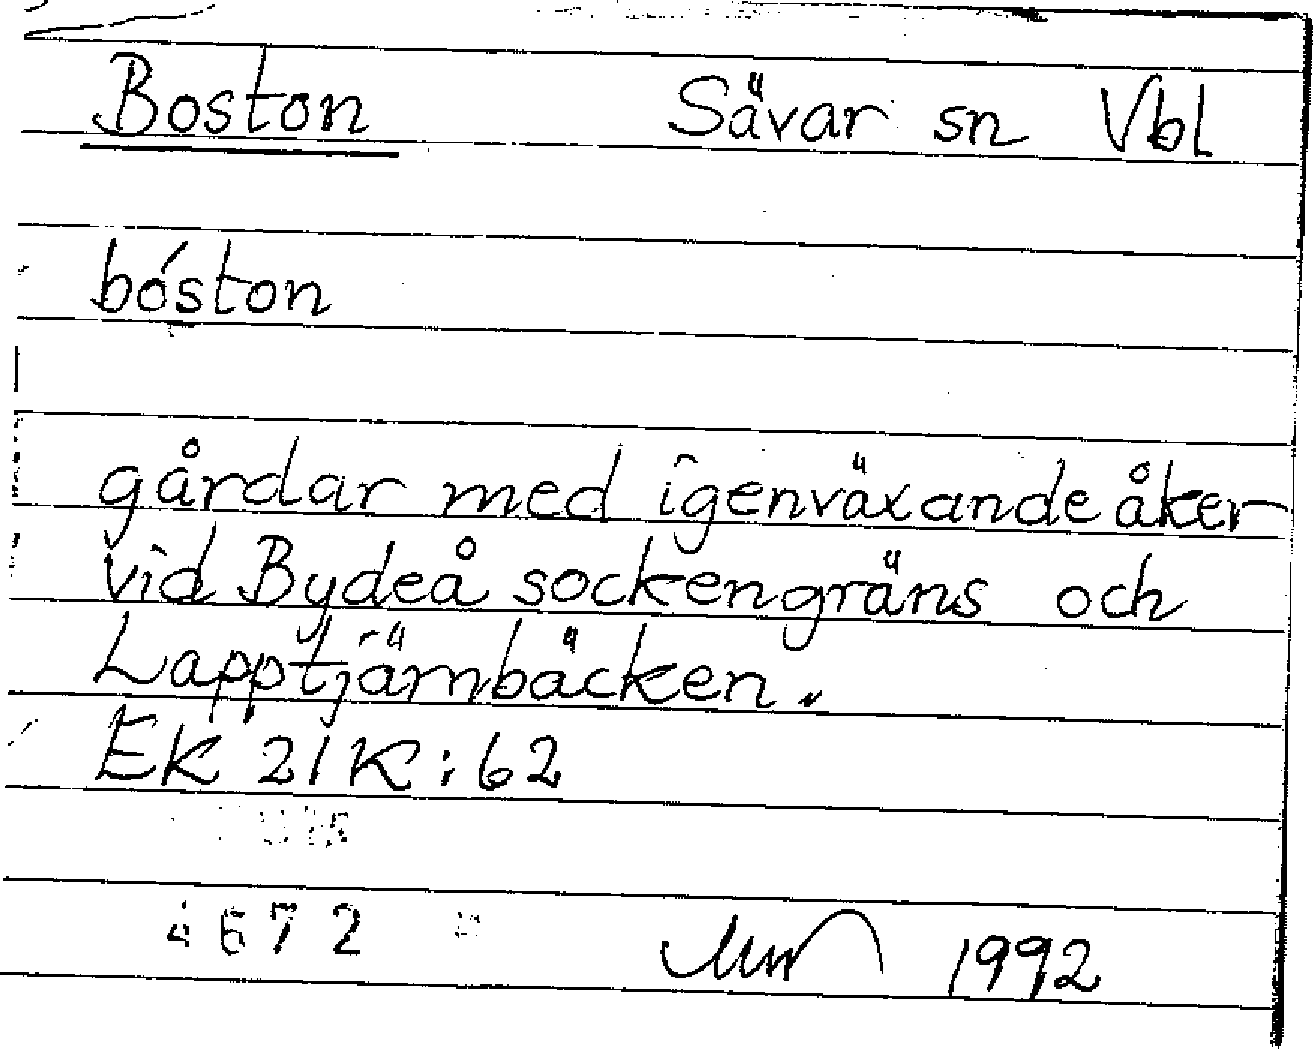 Boston Sävar sn Vbl
bóston
gårdar med igenväxande åker
vid Bydeå sockengräns och
Lapptjärnbäcken.
EK 21K:62
4672
1992